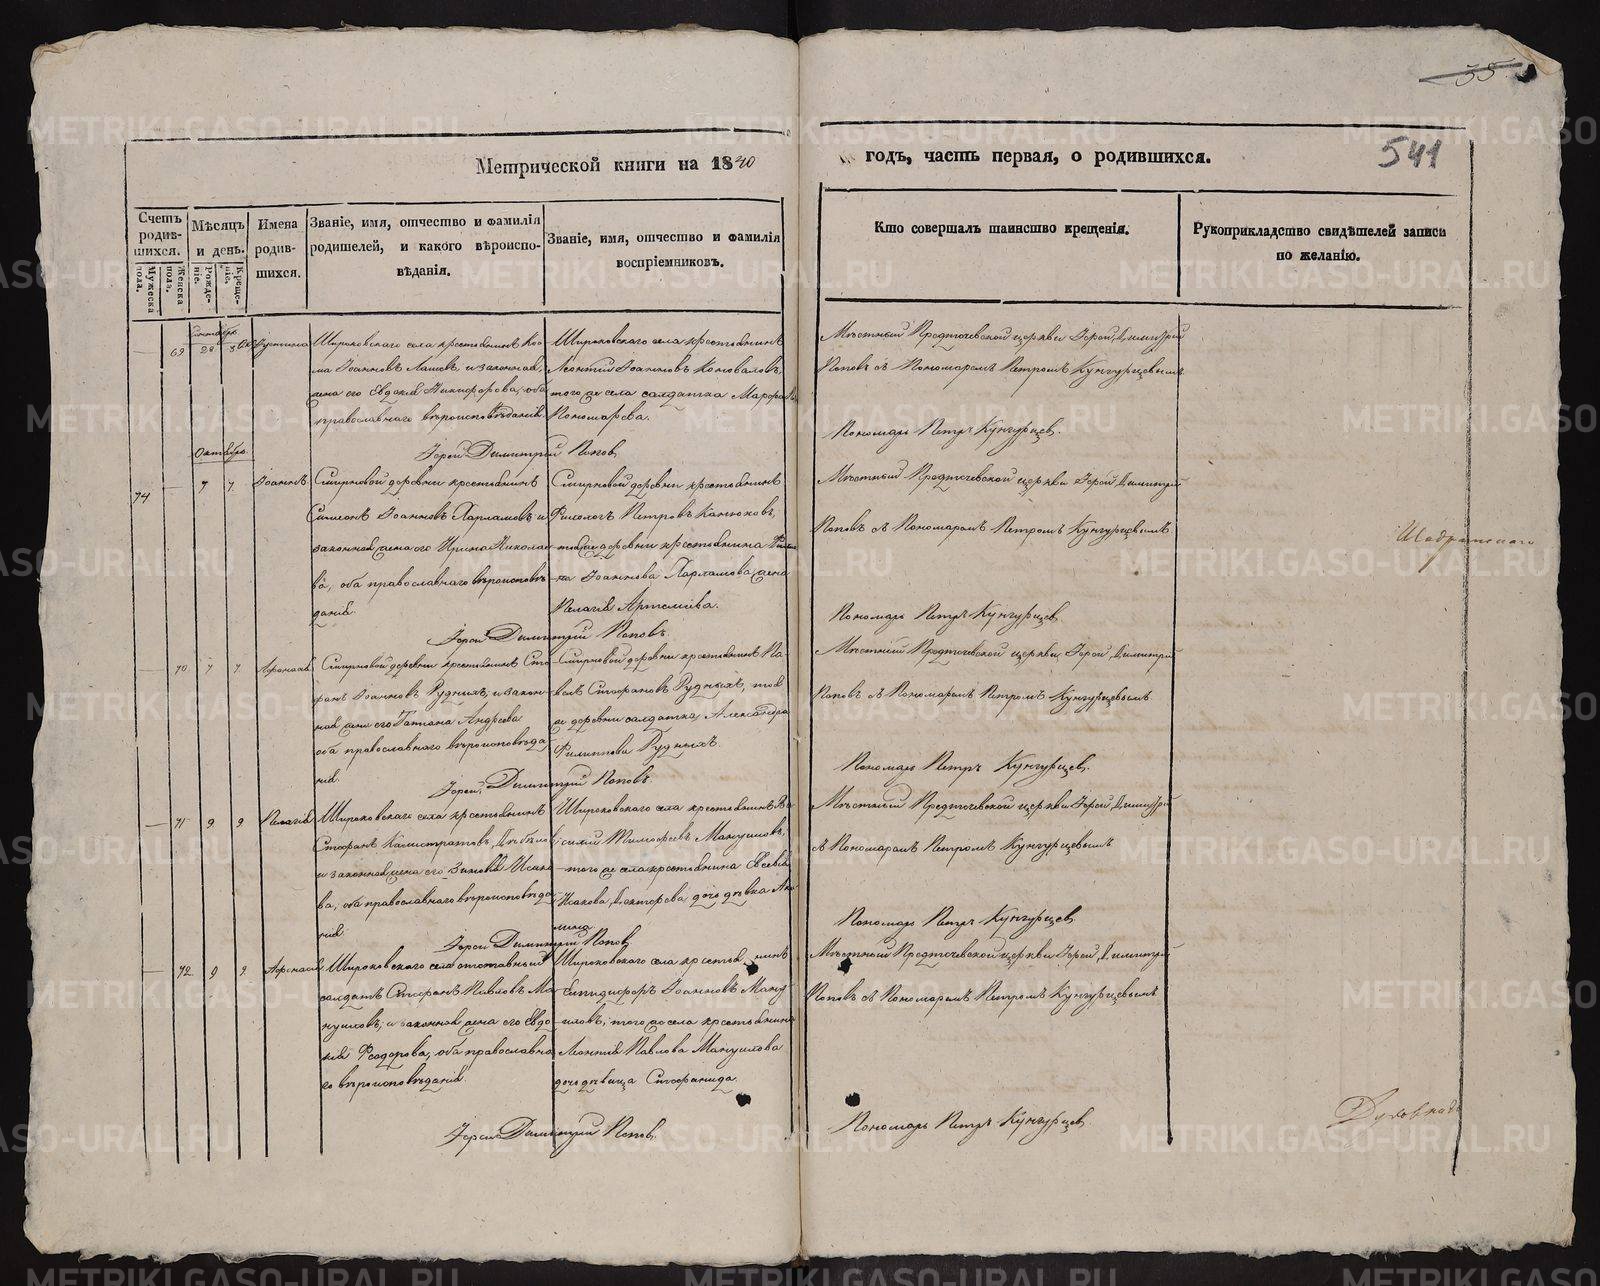 35
541
Метрической книги на 1840
годъ, часть первая, о родившихся.
Счетъ родив-шихся.
Мужеска пола.
Женска пола.
Мѣсяцъ и день.
Рожде-нiе.
Креще-нiе.
Имена родив-шихся.
Званiе, имя, отчество и фамилiя родителей, и какого вѣроиспо-вѣданiя.
Званiе, имя, отчество и фамилiя воспрiемниковъ.
Кто совершалъ таинство крещенiя.
Рукоприкладство свидѣтелей записи по желанiю.
69 28 Iустина
Широковскаго села крестьянинъ Кос-
ма Iоанновъ и законная
жена его Евдокiя Никифорова, оба
православнаго вѣроисповѣданiя
Широковскаго села крестьянинъ
Леонтiй Iоанновъ Коноваловъ,
того же села салдатка Марфа
Пономарева.
Мѣстный Предтечевской церкви Iерей Димитрiй
Поповъ съ Пономаремъ Петромъ Кунгурцевымъ
Iерей Димитрiй Попов
Пономарь Петръ Кунгурцев.
Октября
74 — 7 7 Iоаннъ
Смирновой деревни крестьянинъ
Симеонъ Iоанновъ Харламовъ и
законная жена его Ирина Николае-
ва, оба православнаго вѣроисповѣ-
данiя.
Смирновой деревни крестьянинъ
Петровъ
той же деревни крестьянина
Iоаннова Харламова жена
Пелагiя Артемiева.
Мѣстный Предтечевской церкви Iерей Димитрiй
Поповъ съ Пономаремъ Петромъ Кунгурцевымъ
Iерей Димитрiй Поповъ
Пономарь Петръ Кунгурцев
— 70 7 7
Смирновой деревни крестьянинъ Сте-
фанъ Iоанновъ Рудныхъ, и закон-
ная жена его Татiана Андреева
оба православнаго вѣроисповѣда
нiя.
Смирновой деревни крестьянинъ Па-
велъ Стефановъ Рудныхъ, той
же деревни салдатка Александра
Филиппова Рудныхъ.
Мѣстный Предтечевской церкви Iерей Димитрiй
Поповъ съ Пономаремъ Петромъ Кунгурцевымъ
Iерей Димитрiй Поповъ.
Пономарь Петръ Кунгурцев.
— 71 9 9 Пелагiя
Широковскаго села крестьянинъ
Стефанъ Калистратовъ
и законная жена его
ва, оба православнаго вѣроисповѣда
нiя.
Широковскаго села крестьянинъ Ва
силiй Тимофеевъ Мануиловъ,
того же села крестьянина
Исакова дочь дѣвка Аки
лина
Мѣстный Предтечевской церкви Iерей Димитрiй
съ Пономаремъ Петромъ Кунгурцевымъ
Iерей Димитрiй Попов
Пономарь Петръ Кунгурцев
— 72 9 9
Широковскаго села отставный
салдатъ Стефанъ Павловъ Ма
нуиловъ, и законная жена его Евдо-
кiя Феодорова, оба православна
го вѣроисповѣданiя.
Широковскаго села крестьянинъ
Елпидифоръ Iоанновъ Ману
иловъ, того же села крестьянина
Леонтiя Павлова Мануилова
дочь дѣвица Стефанида.
Мѣстный Предтечевской церкви Iерей Димитрiй
Поповъ съ Пономаремъ Петромъ Кунгурцевымъ
Iерей Димитрiй Попов.
Пономарь Петръ Кунгурцев.
Шадринскаго
METRIKI.GASO-URAL.RU